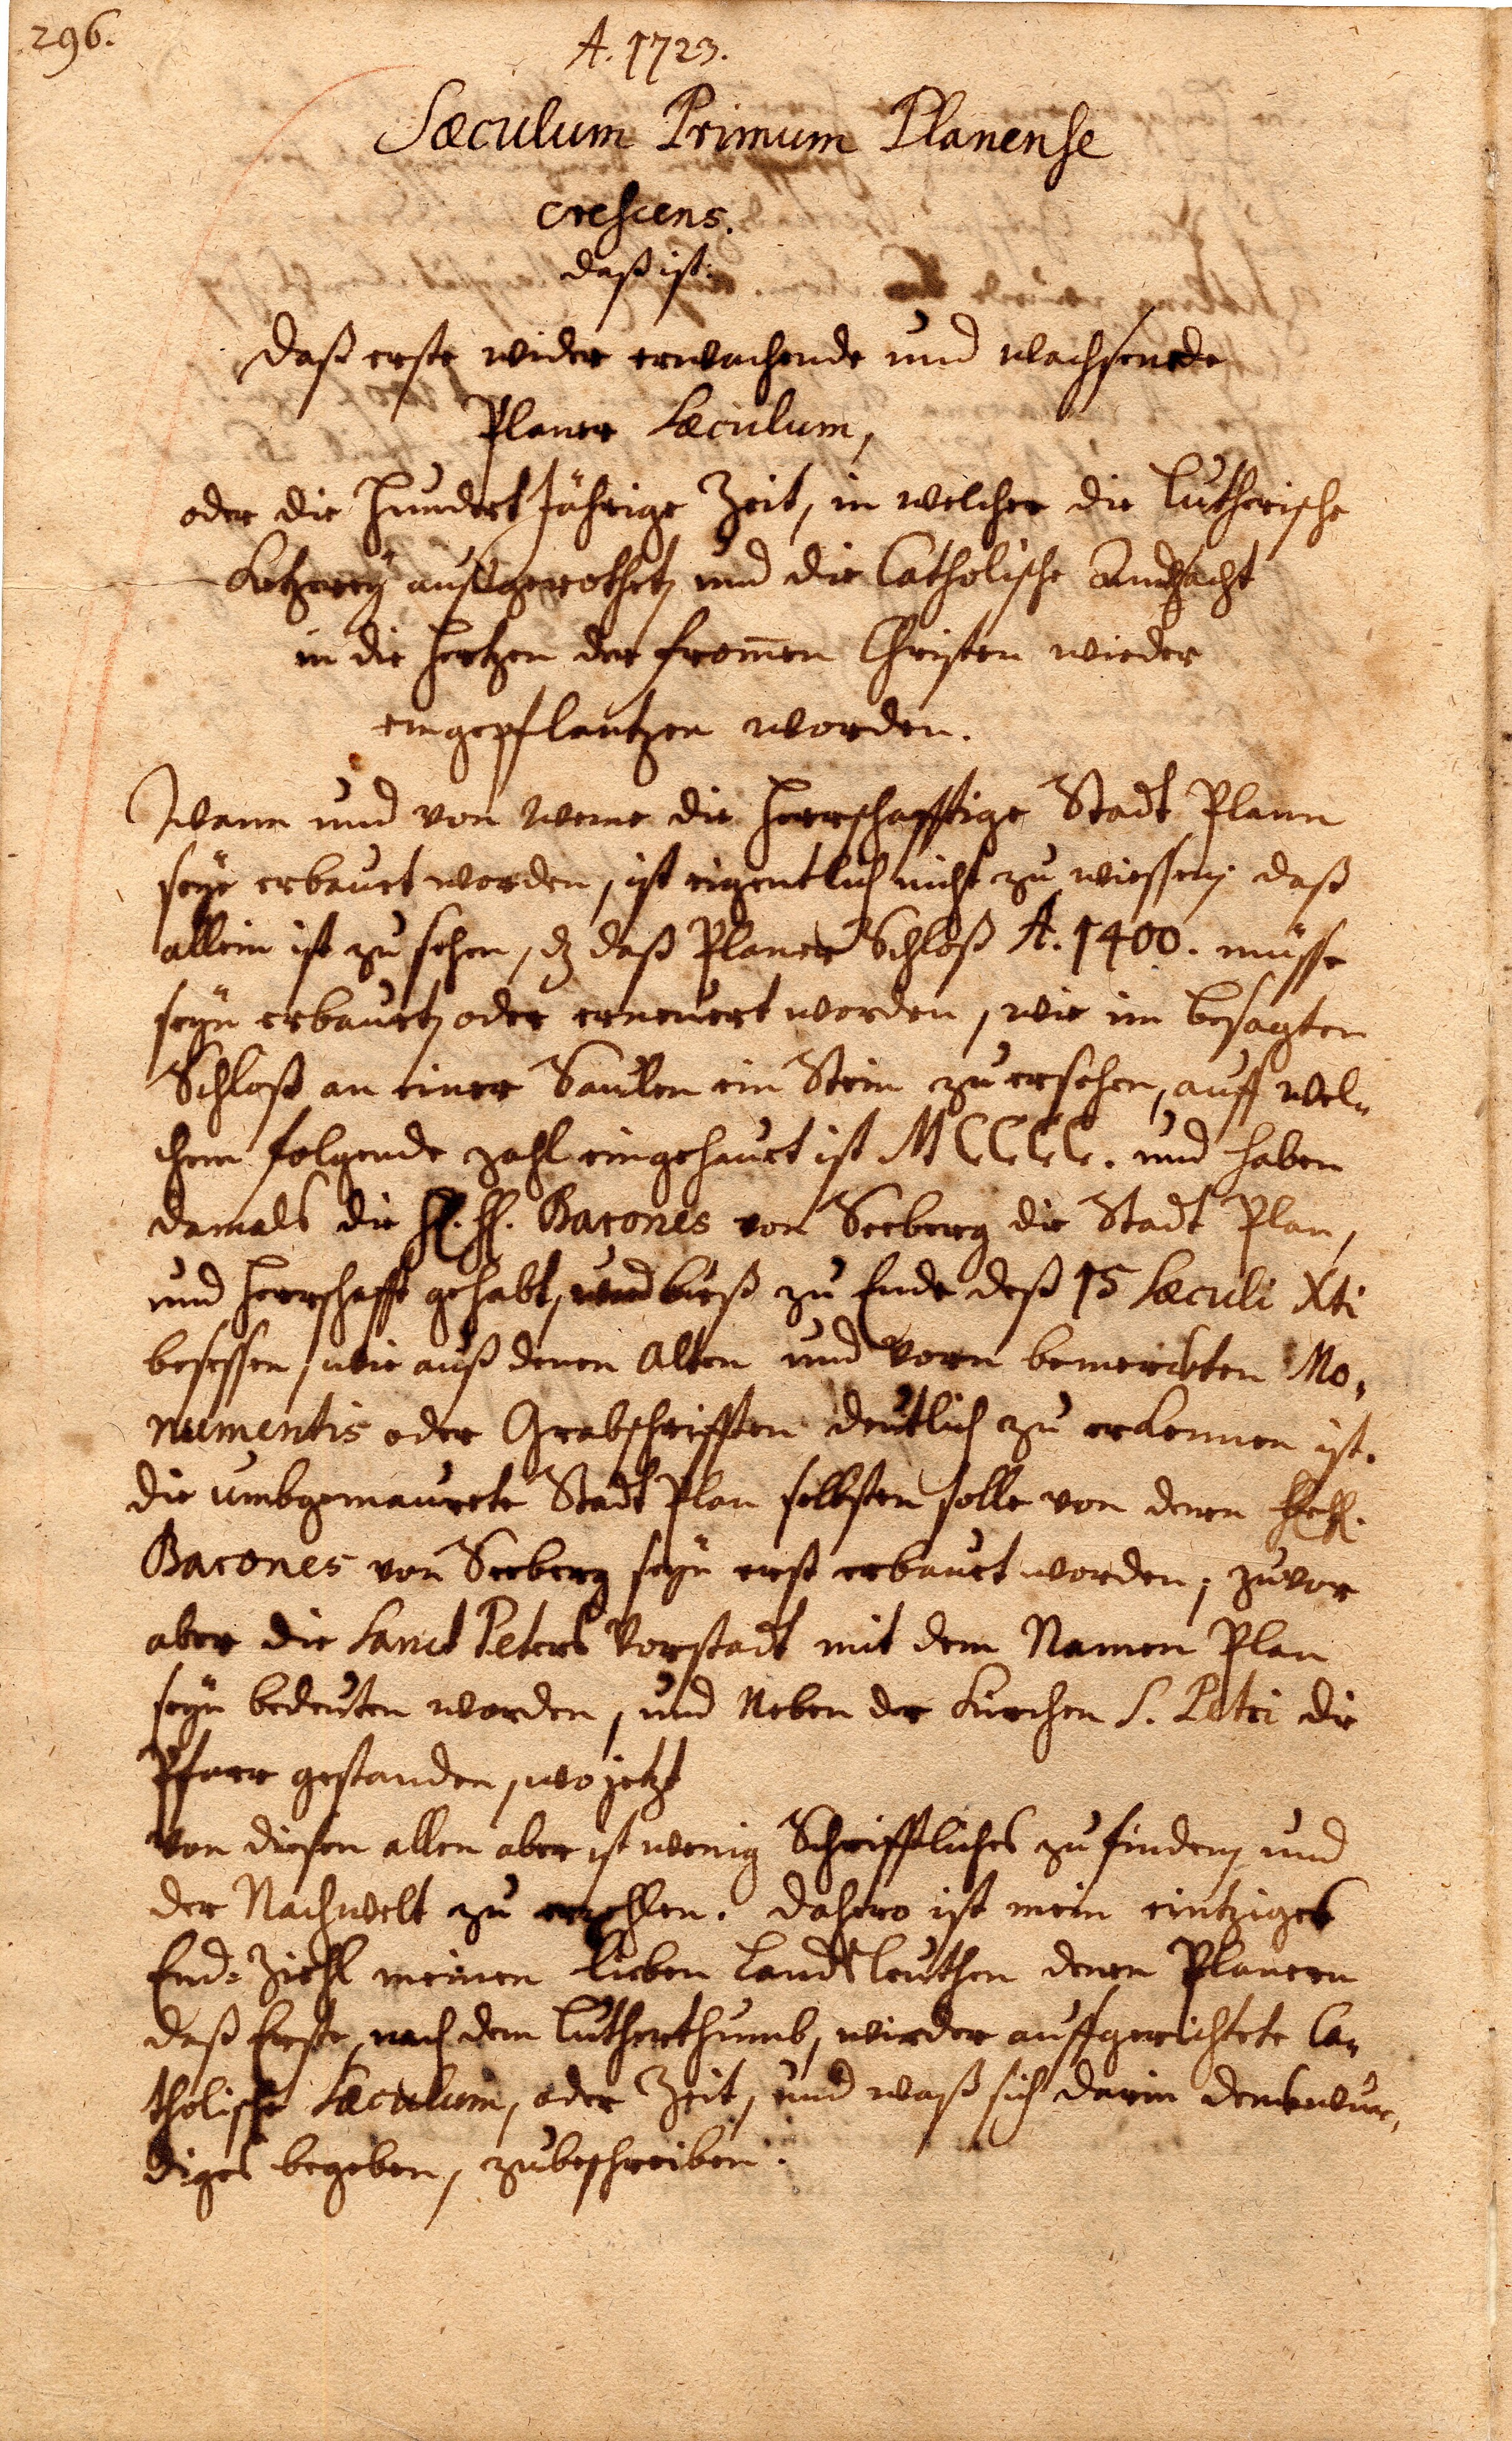 296.
A. 1723.
Sæculum Primum Planense
crescens.
daß ist:
Daß erste wider erwachende und wachsende
Planer Sæculum,
oder die Hundert Jährige Zeit, in welcher die Lutherische
Ketzereÿ außgerothet, und die Catholische Andacht
in die Hertzen der from̄en Christen wieder
eingepflantzen worden.
Wann und von weme die Herrschafftige Stadt Plann
seÿe erbauet worden, ist eigentlich nicht zu wiessen; daß
allein ist zu sehen, dz daß Planer Schloß A. 1400. müsse
seÿn erbauet, oder erneuert worden, wie im besagten
Schloß an einer Saulen ein Stein zu ersehen, auff wel-
chem folgende zahl eingehauet ist MCCCC. und haben
damals die H. H. Barones von Seeberg die Stadt Plan,
und Herrschafft gehabt, und bieß zu Ende deß 15 Sæculi Xti
besessen, wie auß denen Alten und vorn bemerckten Mo-
numentis oder Grabschrifften deutlich zu erkennen ist.
die umbgemaurete Stadt Plan selbsten solle von denen HH.
Barones von Seeberg seÿn erst erbauet worden; zuvor
aber die Sanct Peters Vorstadt mit dem Namen Plan
seÿn bedeuten worden, und Neben der Kirchen S. Petri die
Pfarr gestanden, wo jetzt
Von diesen allen aber ist wenig Schrifftliches zu finden, und
der Nachwelt zu erzehlen. Dahero ist mein eintziges
End-Ziehl meinen lieben Landsleuthen denen Planern
daß Erste, nach dem Lutherthumb, wieder auffgerichtete Ca-
tholische Sæculum, oder Zeit, und waß sich darin denkwür-
diges begeben, zubeschreiben.